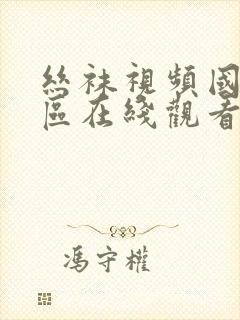 絲袜視頻國
區在綫觀看
馮守權